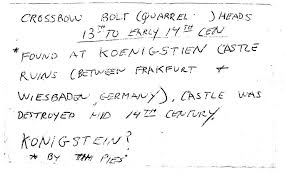 CROSSBOW BOLT (QUARREL) HEADS
13TH TO EARLY 14TH CEN
* FOUND AT KOENIGSTIEN CASTLE
RUINS (BETWEEN FRAKFURT +
WIESBADEN, GERMANY), CASTLE WAS
DESTROYED MID 14TH CENTURY
KONIGSTEIN?
* BY THE PIES